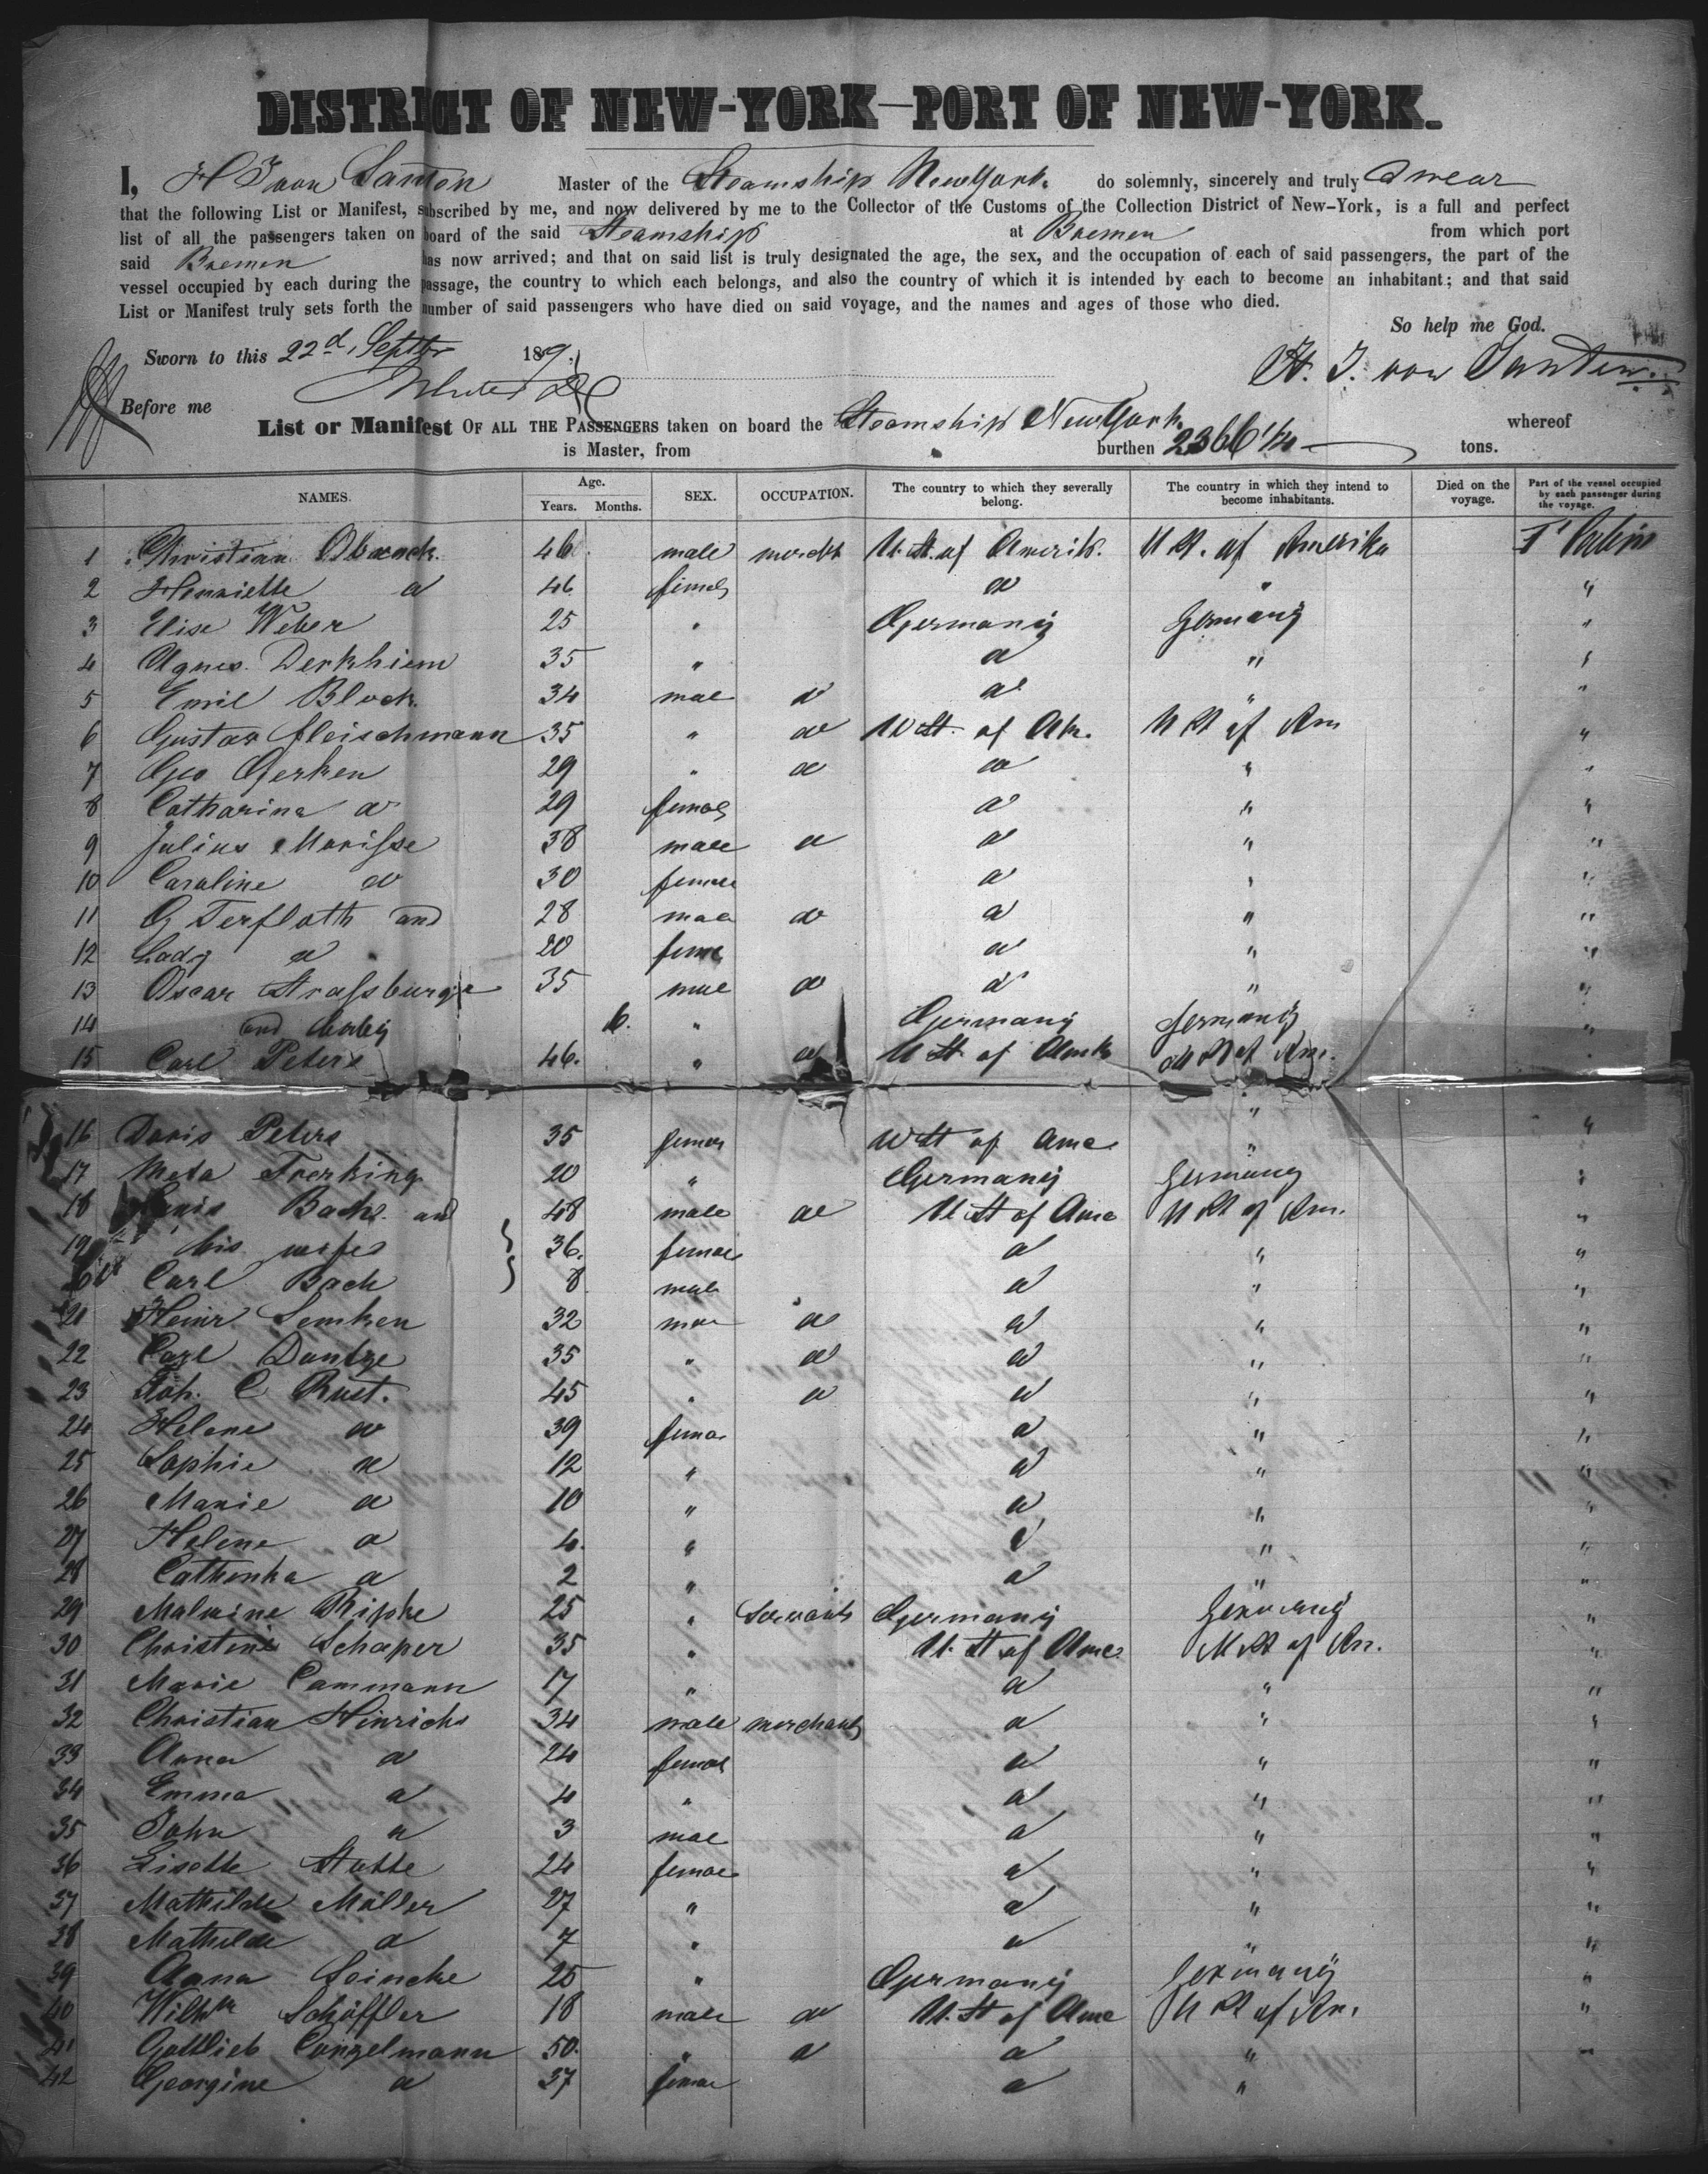 DISTRICT OF NEW-YORK—PORT OF NEW-YORK.
I, H J von Santen Master of the Steamship New York. do solemnly, sincerely and truly swear
that the following List or Manifest, subscribed by me, and now delivered by me to the Collector of the Customs of the Collection District of New-York, is a full and perfect
list of all the passengers taken on board of the said Steamship at Bremen from which port
said Bremen has now arrived; and that on said list is truly designated the age, the sex, and the occupation of each of said passengers, the part of the
vessel occupied by each during the passage, the country to which each belongs, and also the country of which it is intended by each to become an inhabitant; and that said
List or Manifest truly sets forth the number of said passengers who have died on said voyage, and the names and ages of those who died.
So help me God.
Sworn to this 22d. Septbr 18
H. J. von Santen.
Before me
List or Manifest OF ALL THE PASSENGERS taken on board the Steamship New York. whereof
is Master, from burthen 2366 tons.
NAMES. Age. Years. Months. SEX. OCCUPATION. The country to which they severally belong. The country in which they intend to become inhabitants. Died on the voyage. Part of the vessel occupied by each passenger during the voyage.
1 Christian 46 male mercht U. St. of Amerik. U St. of Amerika
2 Henriette d 46 femal d "
3 Elise Weber 25 " Germany Germany "
4 Agnes Derkhiem 35 " d " "
5 Emil Block 34 mal d d " "
6 Gustav Fleischmann 35 " d U St. of Am. U St of Am "
7 Geo Gerken 29 " d d " "
8 Catharina d 29 female d " "
9 Julius Morisse 38 male d d " "
10 Caroline d 30 female d " "
11 G Terfloth and 28 male d d " "
12 Lady d 20 feme d " "
13 Oscar Strassburger 35 male d d " "
14 and baby 6. " Germany Germany "
15 Carl Peters 46. " d U St. of Amk U St of Am. "
16 Doris Peters 35 female U St of Ame " "
17 Meta Froerking 20 " Germany Germany "
18 Bach and 48 male d U St of Ame U St of Am. "
19 his wife 36. female d " "
20 Carl Bach 8 male d " "
21 Heinr Lemken 32 male d d " "
22 Carl Dantze 35 " d d " "
23 Joh. C Rust. 45 " d d " "
24 Helene d 39 female d " "
25 Sophie d 12 " d " "
26 Marie d 10 " d " "
27 Helene d 4. " d " "
28 Cathinka d 2 " d " "
29 Malwine Ripke 25 " Servants Germany Germany "
30 Christine Schaper 35 " U. St of Ame U St of Am. "
31 Marie Cammann 17 " d " "
32 Christian Hinrichs 34 male merchant d " "
33 Anna d 24 female d " "
34 Emma d 4 " d " "
35 John d 3 male d " "
36 Lisette Stutte 24 female d " "
37 Mathilde Müller 27 " d " "
38 Mathilde d 7 " d " "
39 Anna Leincke 25 " Germany Germany "
40 Wilhm Schäffler 18 male d U. St of Ame U St of Am. "
41 Gottlieb Conzelmann 50. " d d " "
42 Georgine d 37 female d "